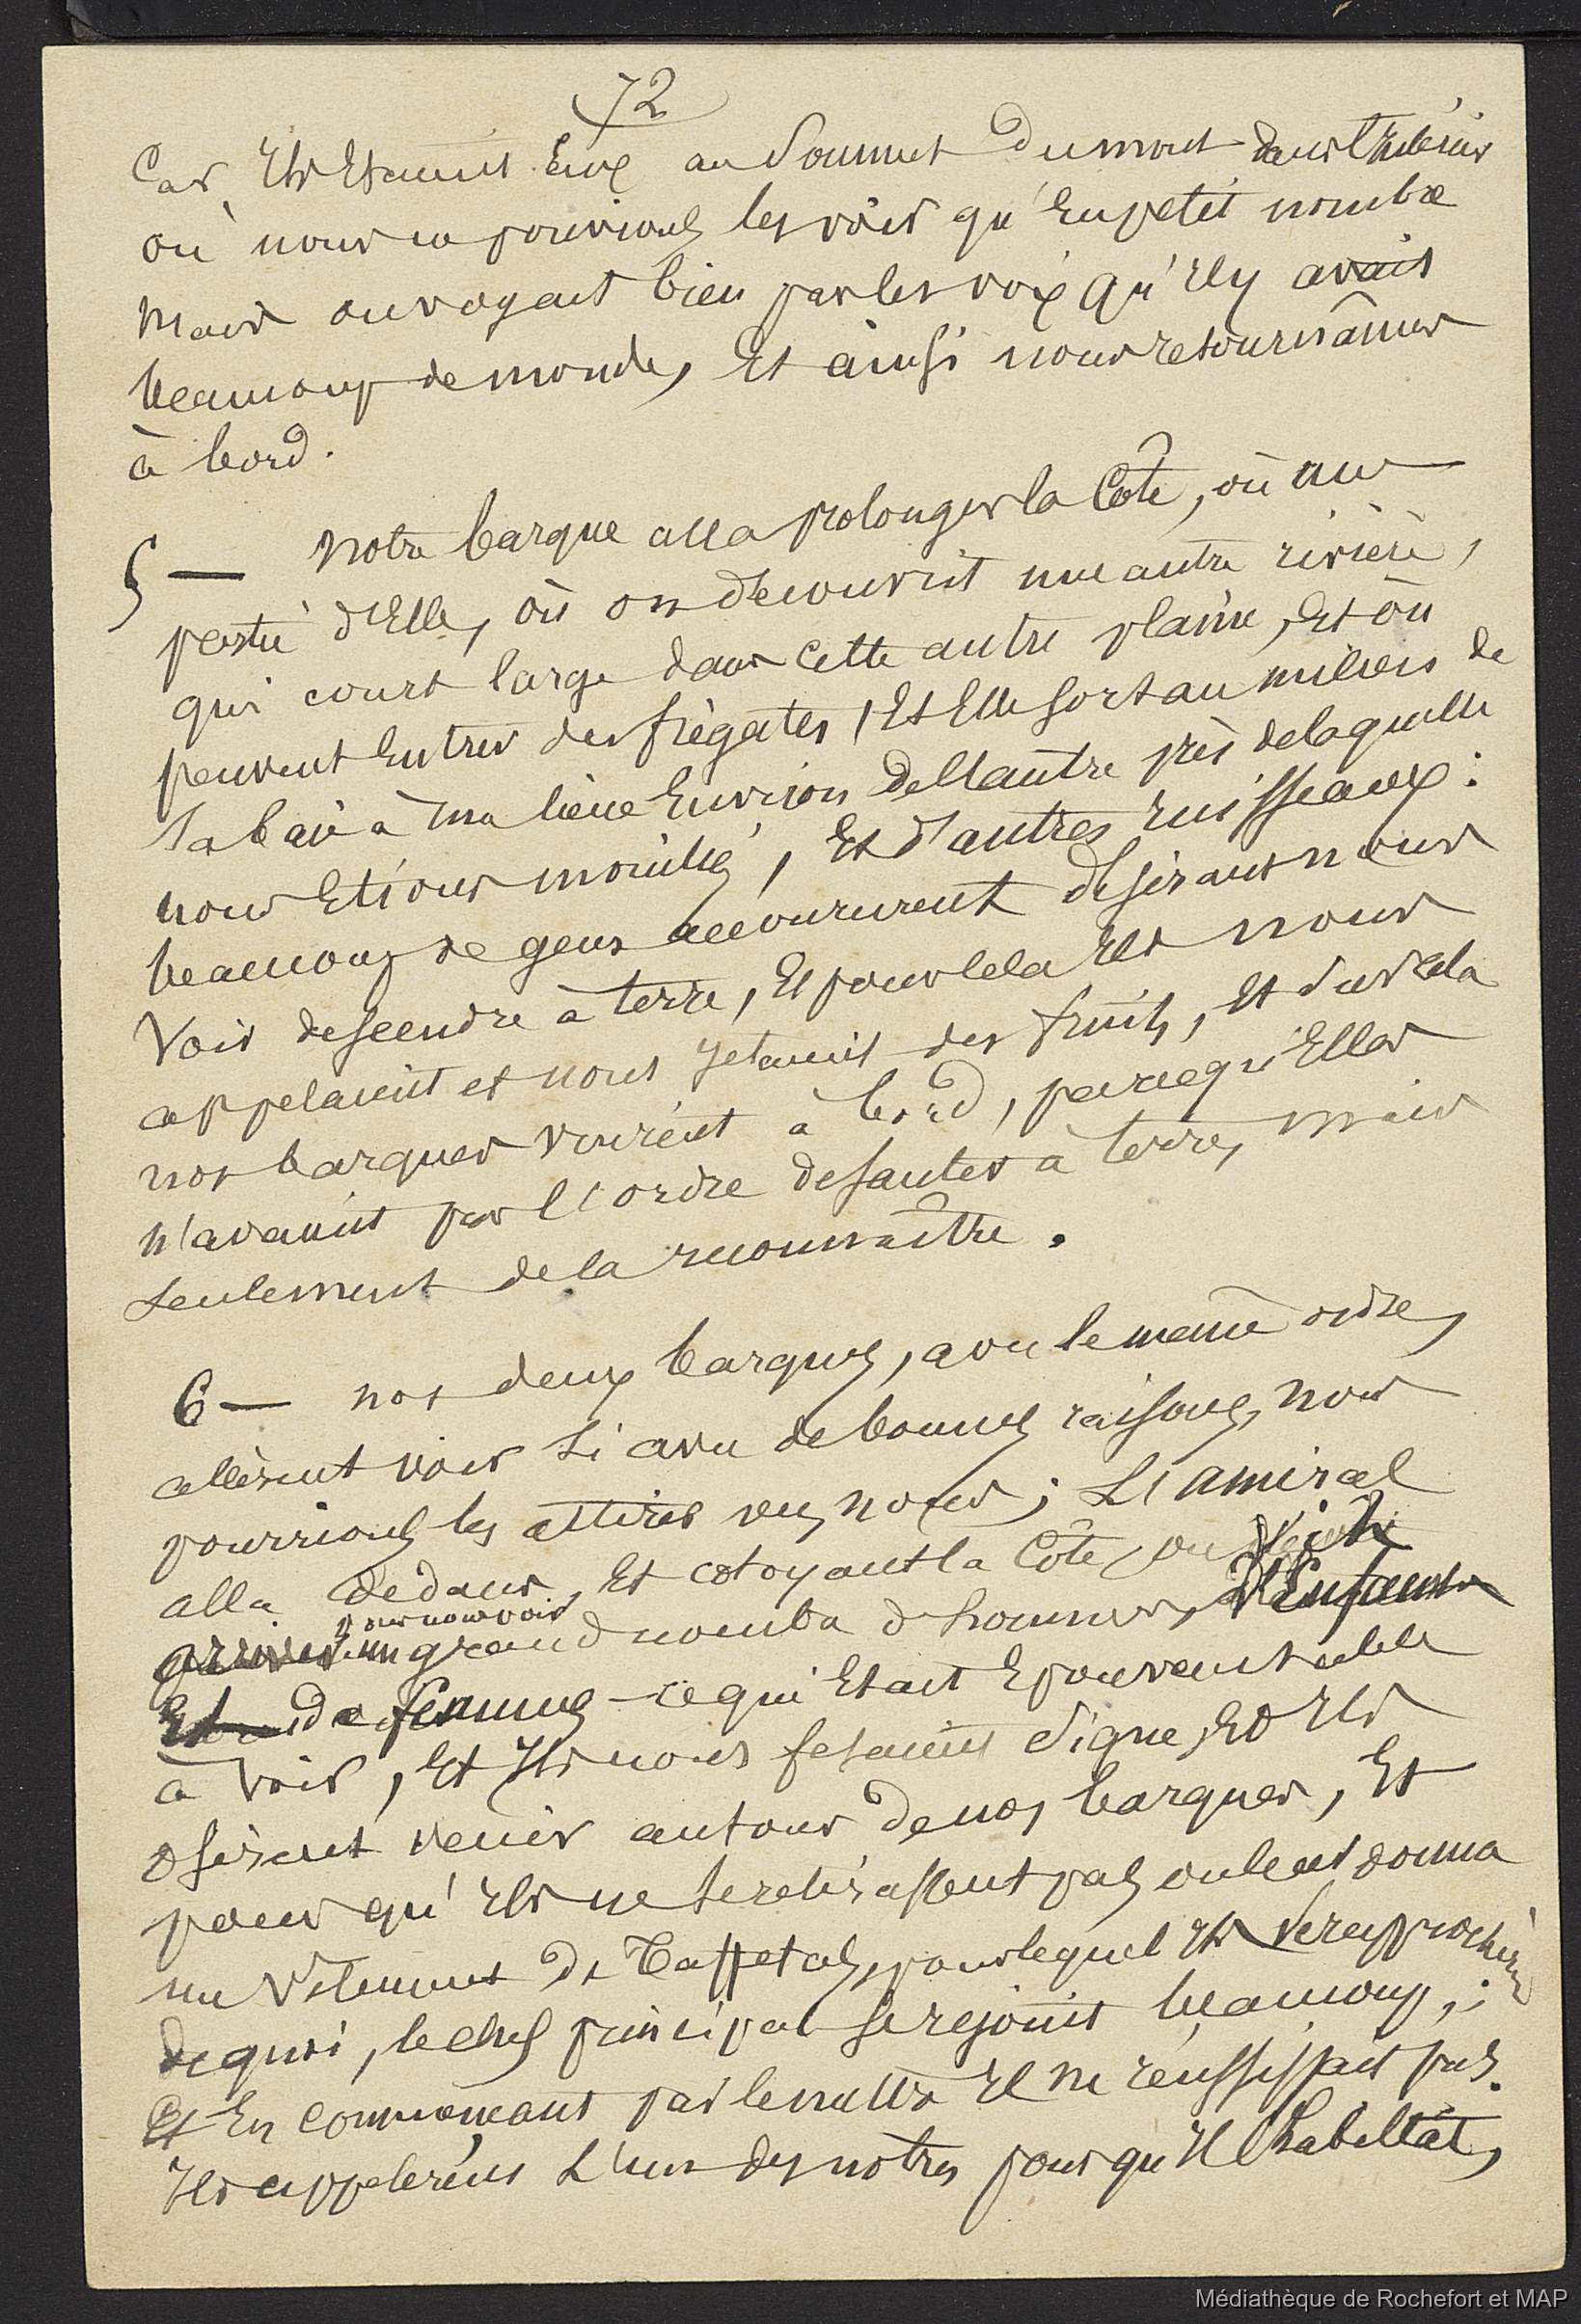 72
Car Ils Etaient Eux au Sommet du mont dans l'Intérieur
où nous ne pouvions les voir qu'En petit nombre
Mais on voyait bien par les voix qu'Il y avait
beaucoup de monde, Et ainsi nous retournâmes
à bord.
5 — Notre barque alla prolonger la Côte, où une
partie d'Elle, où on découvrit une autre rivière,
qui court large dans Cette autre plaine, Et où
peuvent Entrer des frégates, Et Elle sort au milieu de
la baie à une lieue Environ de l'autre près de laquelle
nous Etions mouillés, Et d'autres ruisseaux :
beaucoup de gens accoururent désirant nous
Voir descendre à terre, Et pour cela Ils nous
appelaient et nous jetaient des fruits, Et sur cela
nos barques vinrent à bord, parce qu'Elles
n'avaient pas l'ordre de sauter à terre, mais
seulement de la reconnaître.
6 — nos deux barques, avec le même ordre,
allèrent voir si avec de bonnes raisons, nous
pourrions les attirer vers nous ; L'amiral
alla dedans, Et cotoyant la Côte, on vit
arriver pour nous voir un grand nombre d'hommes, d'Enfants
Et de femmes — ce qui Etait Epouvantable
à voir, Et Ils nous fesaient Signe, Et Ils
osèrent venir autour de nos barques, Et
pour qu'Ils ne se retirassent pas, on leur donna
un Vêtement de Taffetas, pour lequel Ils se rapprochèrent
de quoi, le chef principal se rejouit beaucoup, ;
Et En commençant par le mettre Il ne réussissait pas.
Ils appelèrent L'un des nôtres pour qu'Il l'habillât,
Médiathèque de Rochefort et MAP